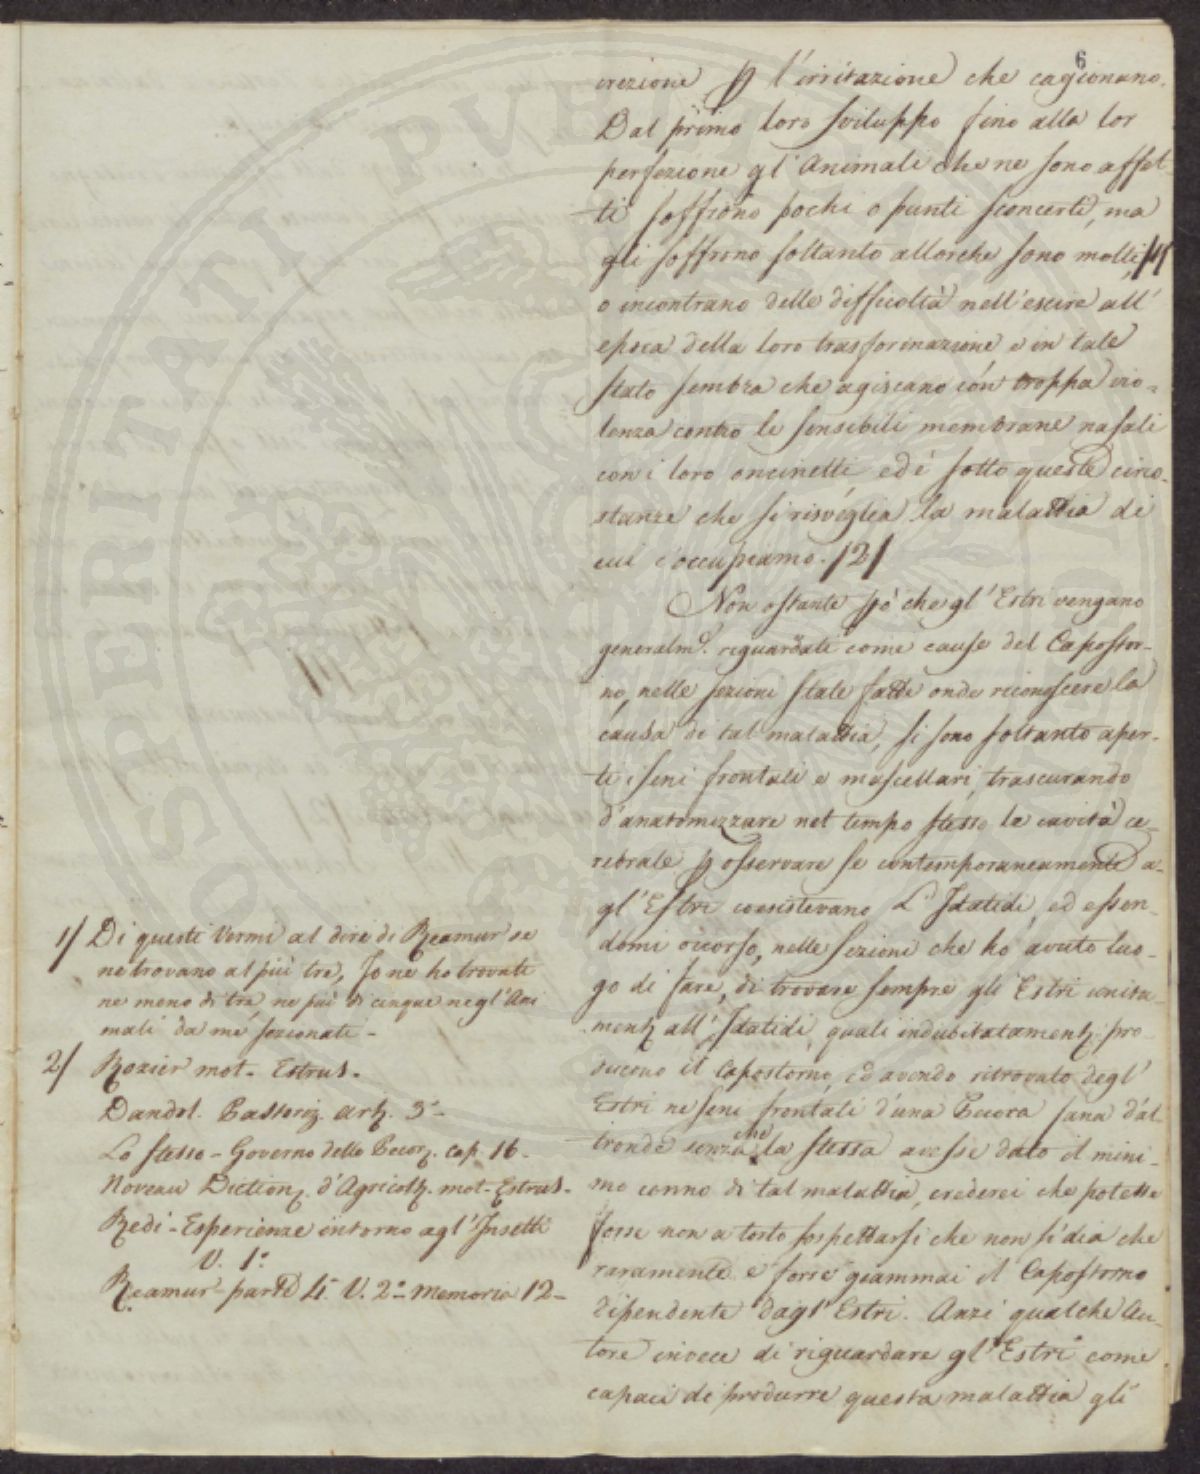 6
crezione p l'irritazione che cagionano.
Dal primo loro sviluppo fino alla lor
perfezione gl'Animali che ne sono affet-
ti soffrono pochi o punti sconcerti, ma
gli soffrono soltanto allorche sono molti, /1/
o incontrano delle difficoltà nell'escire all'
epoca della loro trasformazione e in tale
stato sembra che agiscano con troppa vio-
lenza contro le sensibili membrane nasali
con i loro oncinetti ed è sotto queste circo-
stanze che si risveglia la malattia di
cui c'occupiamo. /2/
Non ostante pò che gl'Estri vengano
generalme. riguardati come cause del Capostor-
no, nelle sezioni state fatte onde riconoscere la
causa di tal malattia, si sono soltanto aper-
ti i seni frontali e mascellari, trascurando
d'anatomizzare nel tempo stesso la cavità ce-
rebrale p osservare se contemporaneamente a-
gl'Estri coesistevano l'Idatidi, ed essen-
domi occorso, nelle sezioni che ho avuto luo-
go di fare, di trovare sempre gli Estri unita-
ment all'Idatidi, quali indubitatament pro-
ducono il Capostorno, ed avendo ritrovato degl'
Estri ne seni frontali d'una Pecora sana d'al-
tronde senza che la stessa avesse dato il mini-
mo cenno di tal malattia, crederei che potesse
forse non a torto sospettarsi che non si dia che
raramente e forse giammai il Capostorno
dipendente dagl'Estri. Anzi qualche Au-
tore invece di riguardare gl'Estri come
capaci di produrre questa malattia gli
1/ Di questi Vermi al dire di Reamur se
ne trovano al più tre, Io ne ho trovati
ne meno di tre, ne più di cinque negl'Ani
mali da me sezionati-
2/ Rozier mot. Estrus.
Dandol. Pastoriz. art. 3°-
Lo stesso - Governo delle Pecor. cap. 16-
Noveau Diction. d'Agricolt. mot- Estrus-
Redi - Esperienze intorno agl'Insetti
V. 1°
Reamur part 4. V. 2° Memoria 12-